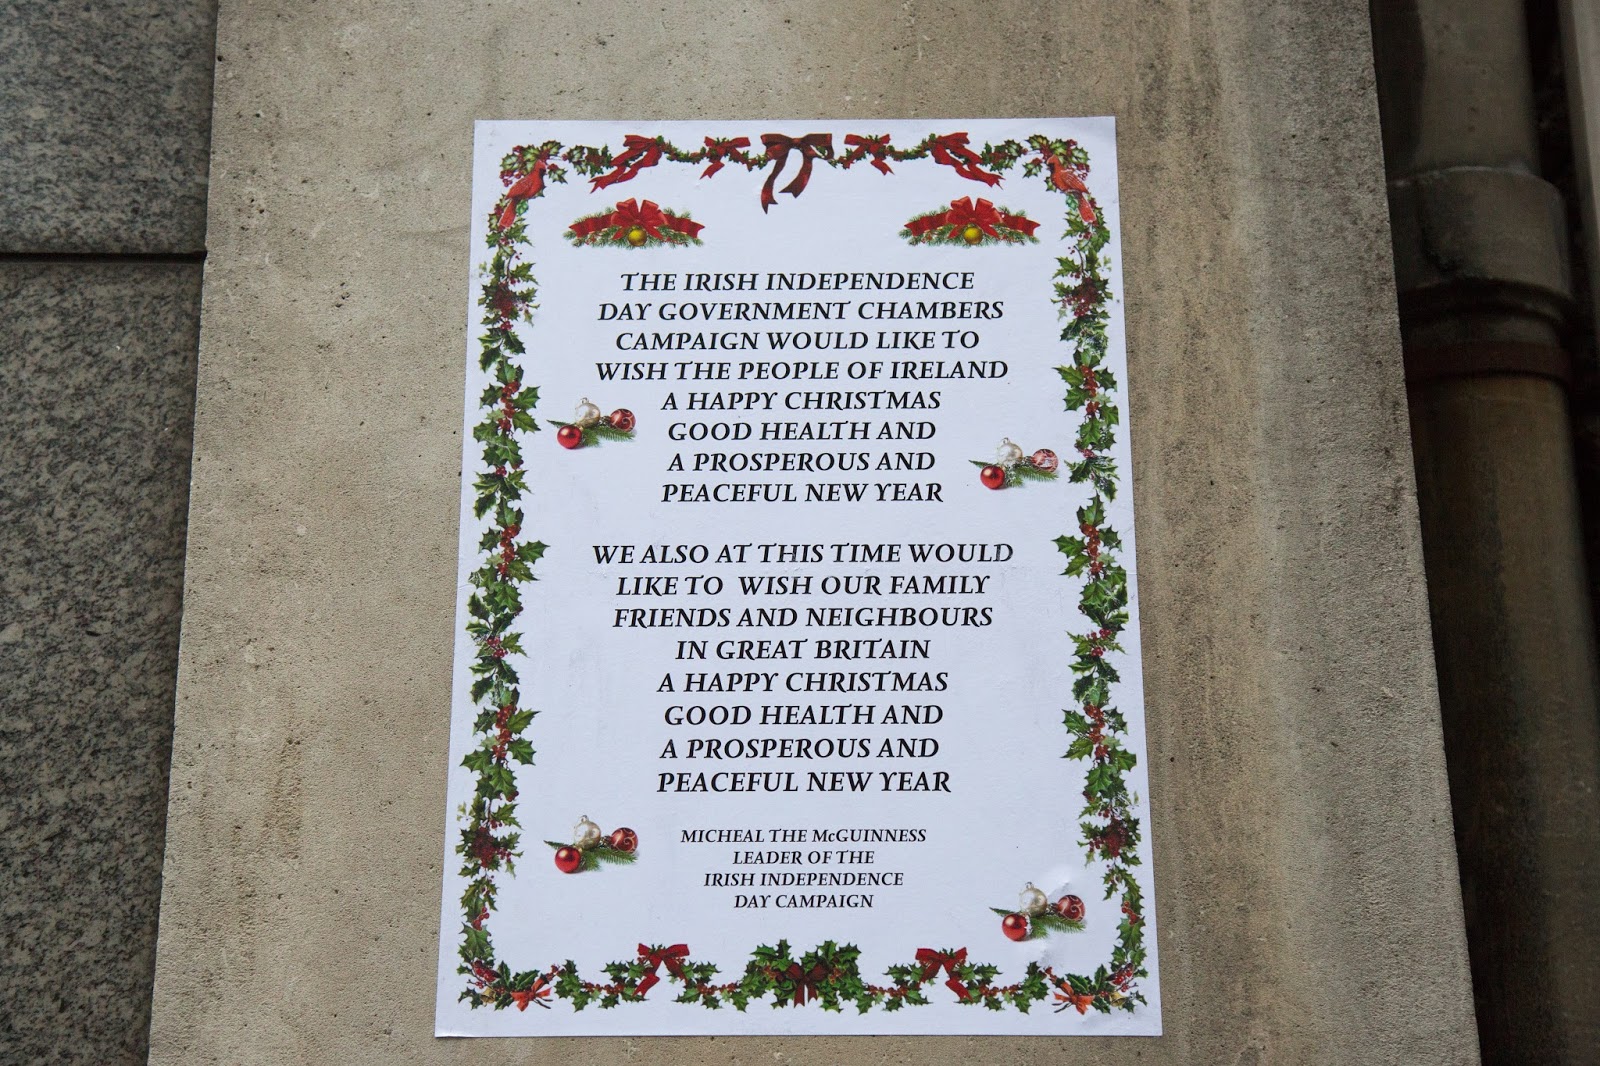 THE IRISH INDEPENDENCE
DAY GOVERNMENT CHAMBERS
CAMPAIGN WOULD LIKE TO
WISH THE PEOPLE OF IRELAND
A HAPPY CHRISTMAS
GOOD HEALTH AND
A PROSPEROUS AND
PEACEFUL NEW YEAR
WE ALSO AT THIS TIME WOULD
LIKE TO WISH OUR FAMILY
FRIENDS AND NEIGHBOURS
IN GREAT BRITAIN
A HAPPY CHRISTMAS
GOOD HEALTH AND
A PROSPEROUS AND
PEACEFUL NEW YEAR
MICHEAL THE McGUINNESS
LEADER OF THE
IRISH INDEPENDENCE
DAY CAMPAIGN